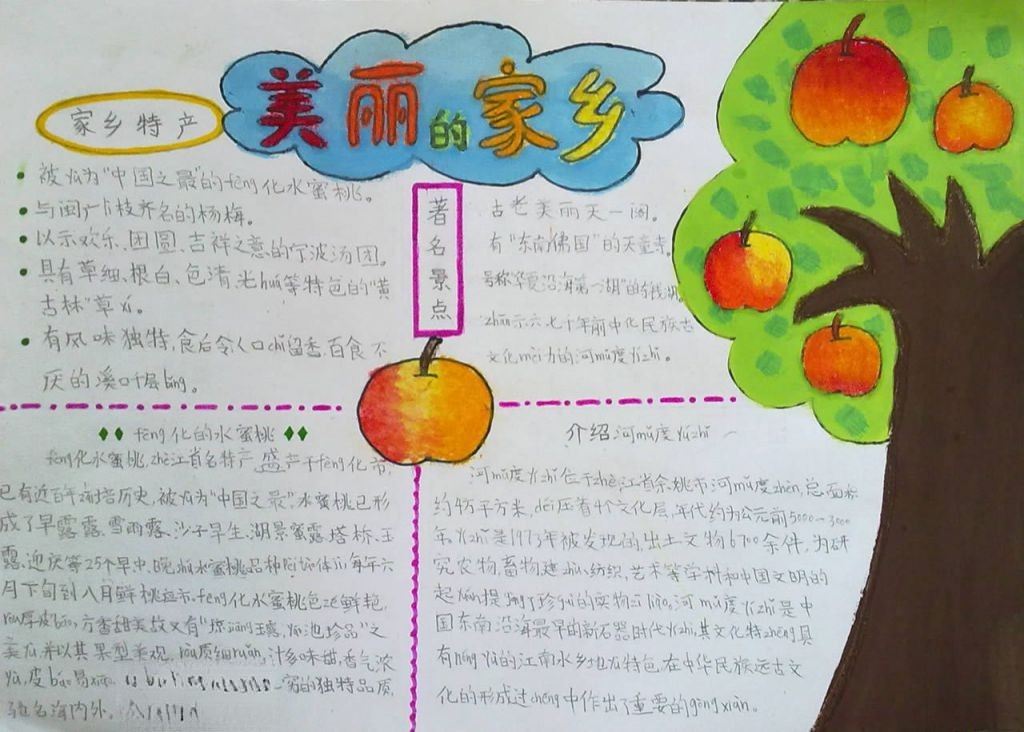 美丽的家乡
家乡特产
被yù为"中国之最"的fèng化水蜜桃。
与闽广荔枝齐名的杨梅。
以示欢乐、团圆、吉祥之意的宁波汤团。
具有草细、根白、色清、光huá等特色的"黄
古林"草xí。
有风味独特,食后令人口chǐ留香,百食不
厌的溪口千层bǐng。
著名景点
古老美丽天一阁。
有"东南佛国"的天童寺。
号称"华夏沿海第一湖"的东钱湖。
zhǎn示六七千年前中华民族古
文化mèi力的河mǔ渡yízhǐ。
fèng化的水蜜桃
fèng化水蜜桃,zhè江省名特产,盛产于fèng化市,
已有近百年 历史,被yù为"中国之最"水蜜桃已形
成了早露露、雪雨露、沙子早生、湖景蜜露、塔桥、玉
露、迎庆等25个早中、晚 水蜜桃品种 体 每年六
月下旬到八月鲜桃 市,fèng化水蜜桃色 鲜艳,
皮 方香甜美故又有"琼jiāng玉露,yáo池珍品"之
美 并以其果型美观,ròu质细ruǎn,汁多味甜,香气浓
yù,皮báo易 一 的独特品质,
驰名海内外。
介绍河mǔ渡yízhǐ
河mǔ渡yízhǐ位于zhè江省余姚市河mǔ渡zhèn,总面积
约4万平方米,dié压着4个文化层,年代约为公元前5000-3000
年。yízhǐ是1973年被发现的,出土文物6700余件,为研
究农物,畜物,建zhù,纺织,艺术等学科和中国文明的
起yuán提 了珍guì的实物zī liào,河mǔ渡yízhǐ是中
国东南沿海最早的新石器时代yízhǐ,其文化特zhēng具
有nóng yù的江南水乡地方特色,在中华民族远古文
化的形成过chéng中作出了重要的gòng xiàn。